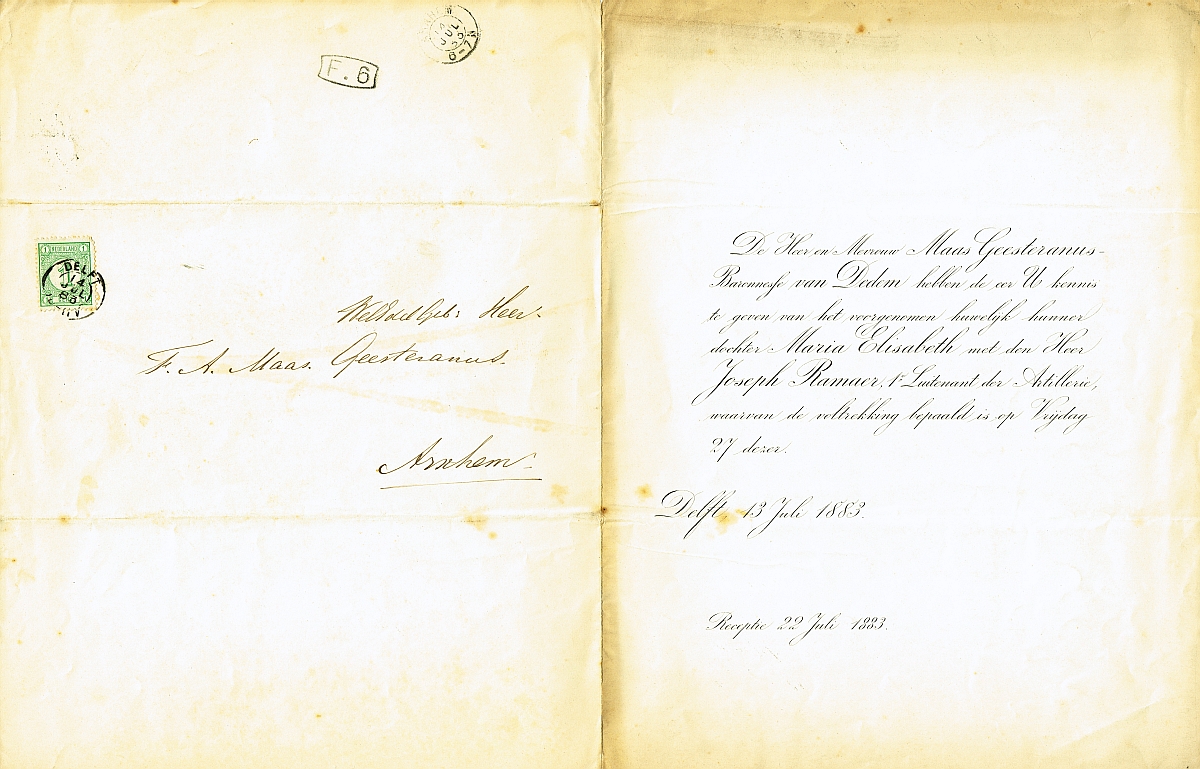 F. 6
6-7N
1 NEDERLAND 1
DELFT
14
JUL
83
WelEdelGeb: Heer.
F. A. Maas Geesteranus.
Arnhem
De Heer en Mevrouw Maas Geesteranus-
Baronnesse van Dedem hebben de eer U kennis
te geven van het voorgenomen huwelijk hunner
dochter Maria Elisabeth met den Heer
Joseph Ramaer, 1e Luitenant der Artillerie,
waarvan de voltrekking bepaald is op Vrijdag
27 dezer.
Delft 13 Juli 1883.
Receptie 22 Juli 1883.